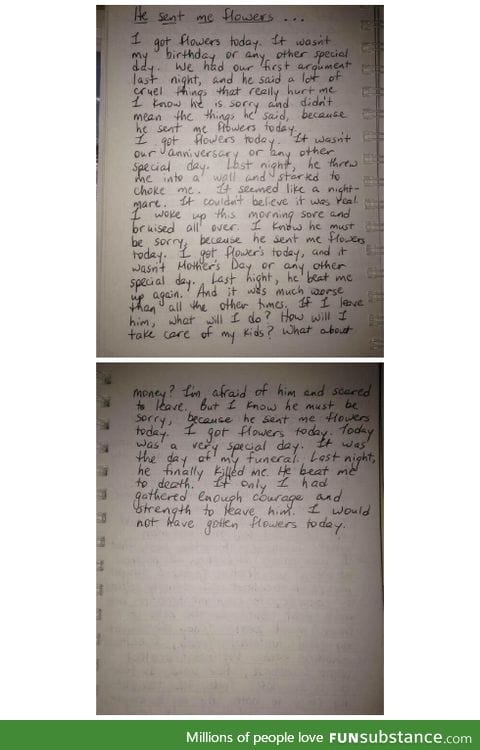 He sent me flowers ...
I got flowers today. It wasn't
my birthday or any other special
day. We had our first argument
last night, and he said a lot of
cruel things that really hurt me
I know he is sorry and didn't
mean the things he said, because
he sent me flowers today.
I got flowers today. It wasn't
our anniversary or any other
special day. Last night, he threw
me into a wall and started to
choke me. It seemed like a night-
mare. It couldn't believe it was real
I woke up this morning sore and
bruised all over. I know he must
be sorry, because he sent me flowers
today. I got flower's today, and it
wasn't Mother's Day or any other
special day. Last night, he beat me
up again. And it was much worse
than all the other times. If I leave
him, what will I do? How will I
take care of my kids? What about
money? I'm afraid of him and scared
to leave. But I know he must be
sorry, because he sent me flowers
today. I got flowers today. Today
was a very special day. It was
the day of my funeral. Last night,
he finally killed me. He beat me
to death. If only I had
gathered enough courage and
strength to leave him. I would
not have gotten flowers today.
Millions of people love FUNsubstance.com